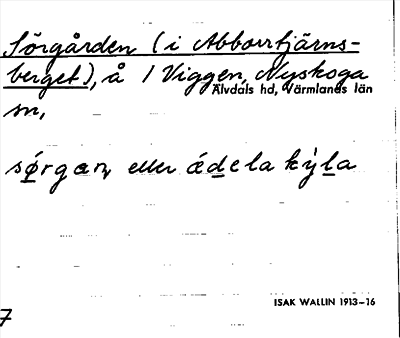 Sörgården (i Abborrtjärns-
berget), å 1 Viggen, Nyskoga
Älvdals hd, Värmlands län
sn,
sǿrgan, eller ádela kỳla
ISAK WALLIN 1913-16
7